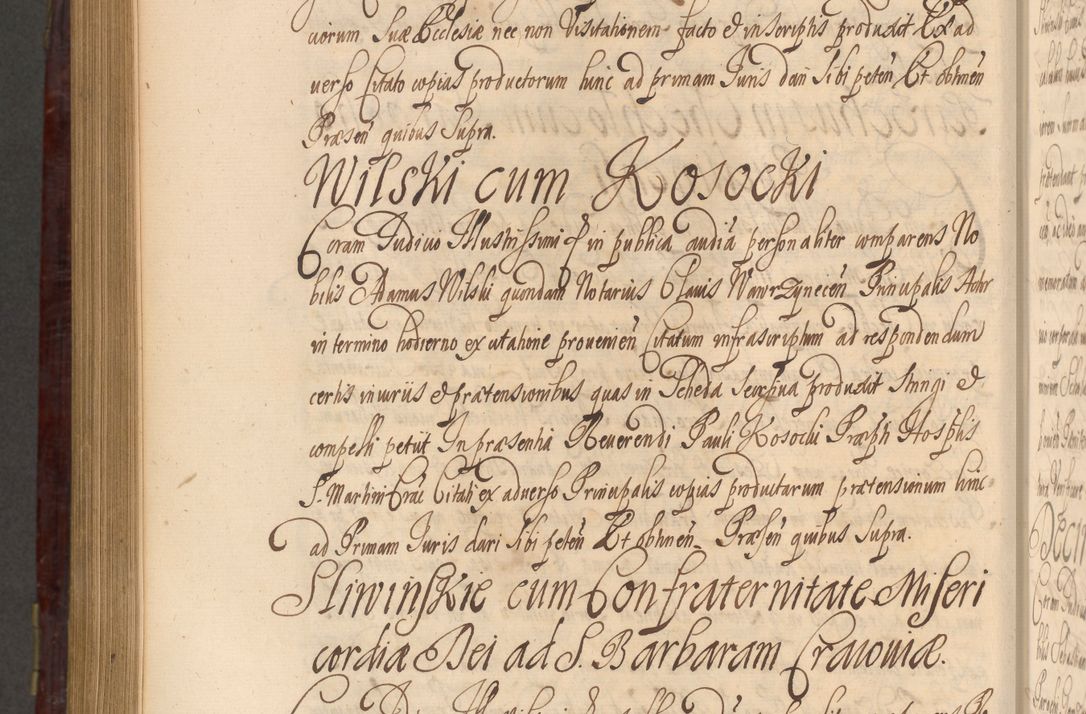 uiorum suæ Ecclesiæ nec non Visitationem facto et in scriptis produxit Ex ad
uerso Citato copias productorum hinc ad primam Juris dari sibi peten Et obtinen
Præsen quibus Supra.
Wilski cum Kosocki
Coram Judicio Illustrissimi et in publica audia personaliter comparens No
bilis Adamus Wilski quondam Notarius Clauis Wawrzynecen Principalis Actor
in termino hodierno ex citatione prouenien Citatum infrascriptum ad respondendum
certis iniuriis et prætensionibus quas in Scheda seorsiua produxit stringi et
compelli petiit In præsentia Reuerendi Pauli Kosocki Præpti Hosptlis
S. Martini Crac Citati ex aduerso Principalis copias productarum prætensionum hinc
ad Primam Juris dari sibi peten Et obtinen. Præsen quibus Supra.
Sliwinskie cum Confraternitate Miseri
cordiæ Dei ad S. Barbaram Cracouiæ.